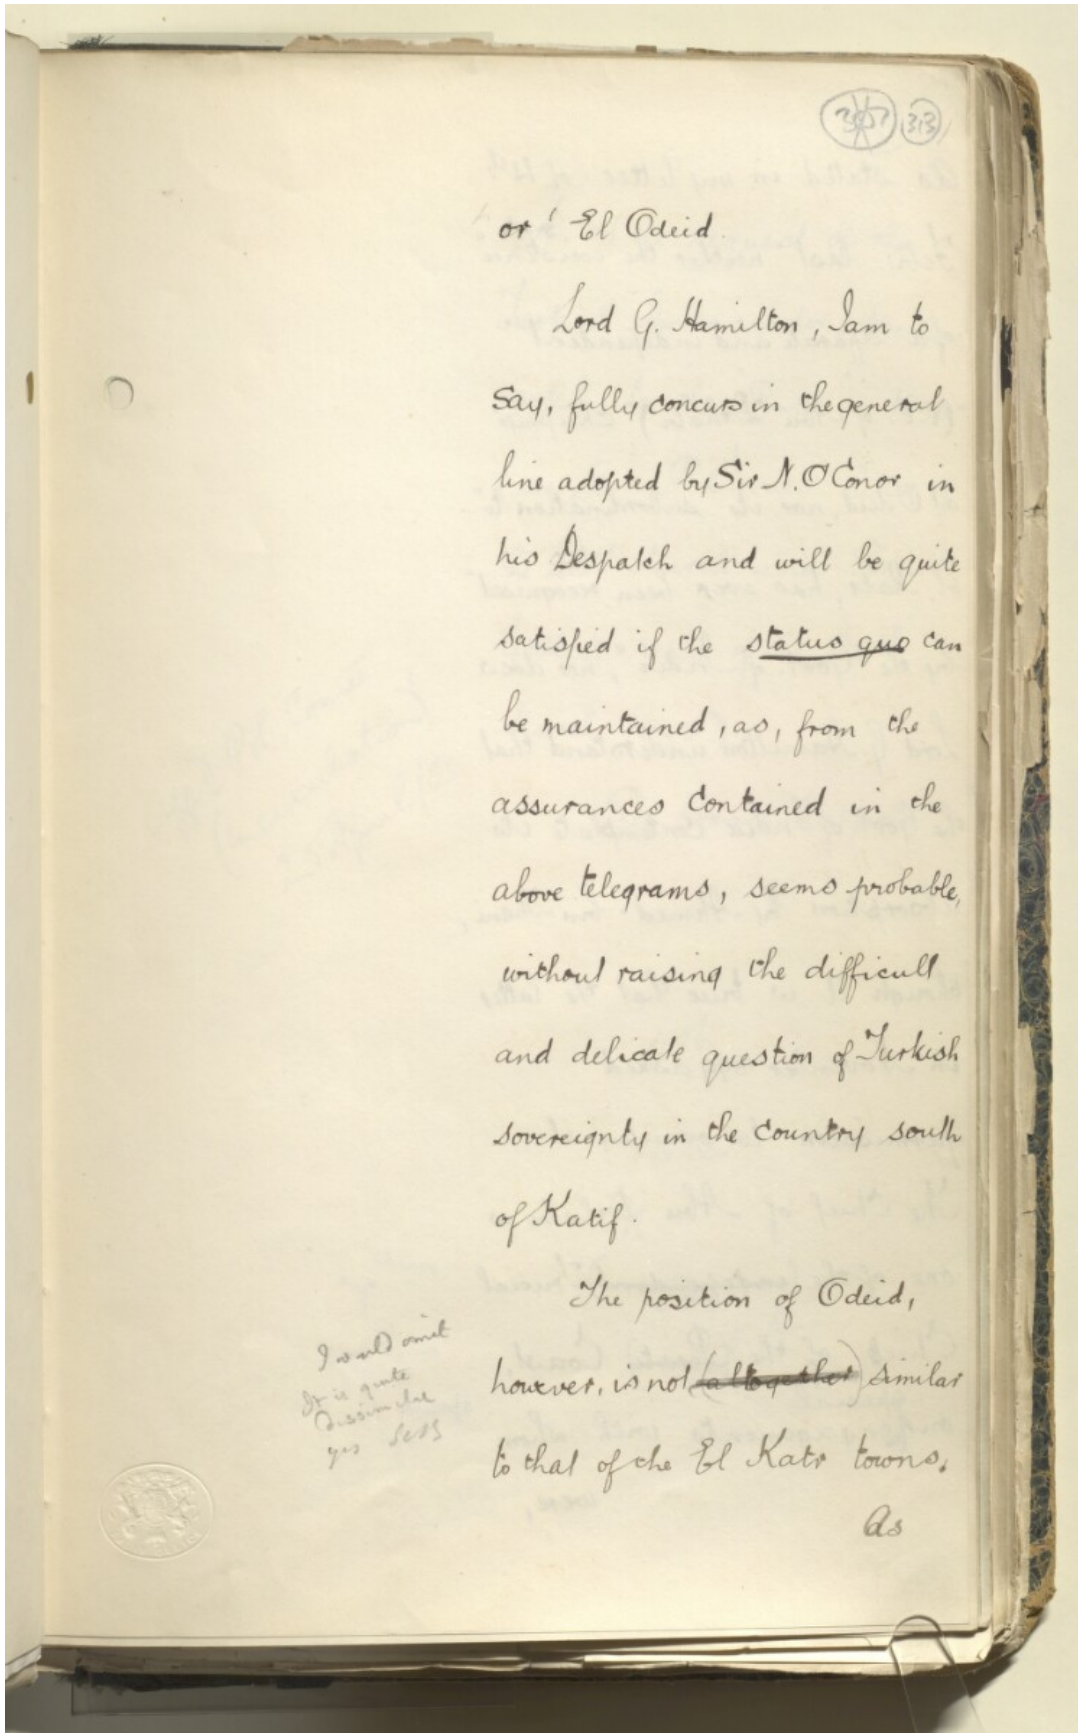 313
or El Odeid.
Lord G. Hamilton, I am to
say, fully concurs in the general
line adopted by Sir N. O'Conor in
his Despatch and will be quite
satisfied if the status quo can
be maintained, as, from the
assurances contained in the
above telegrams, seems probable,
without raising the difficult
and delicate question of Turkish
sovereignty in the country south
of Katif.
The position of Odeid,
however, is not (altogether) similar
to that of the El Katr towns.
As
I would omit
It is quite
dissimilar
yes